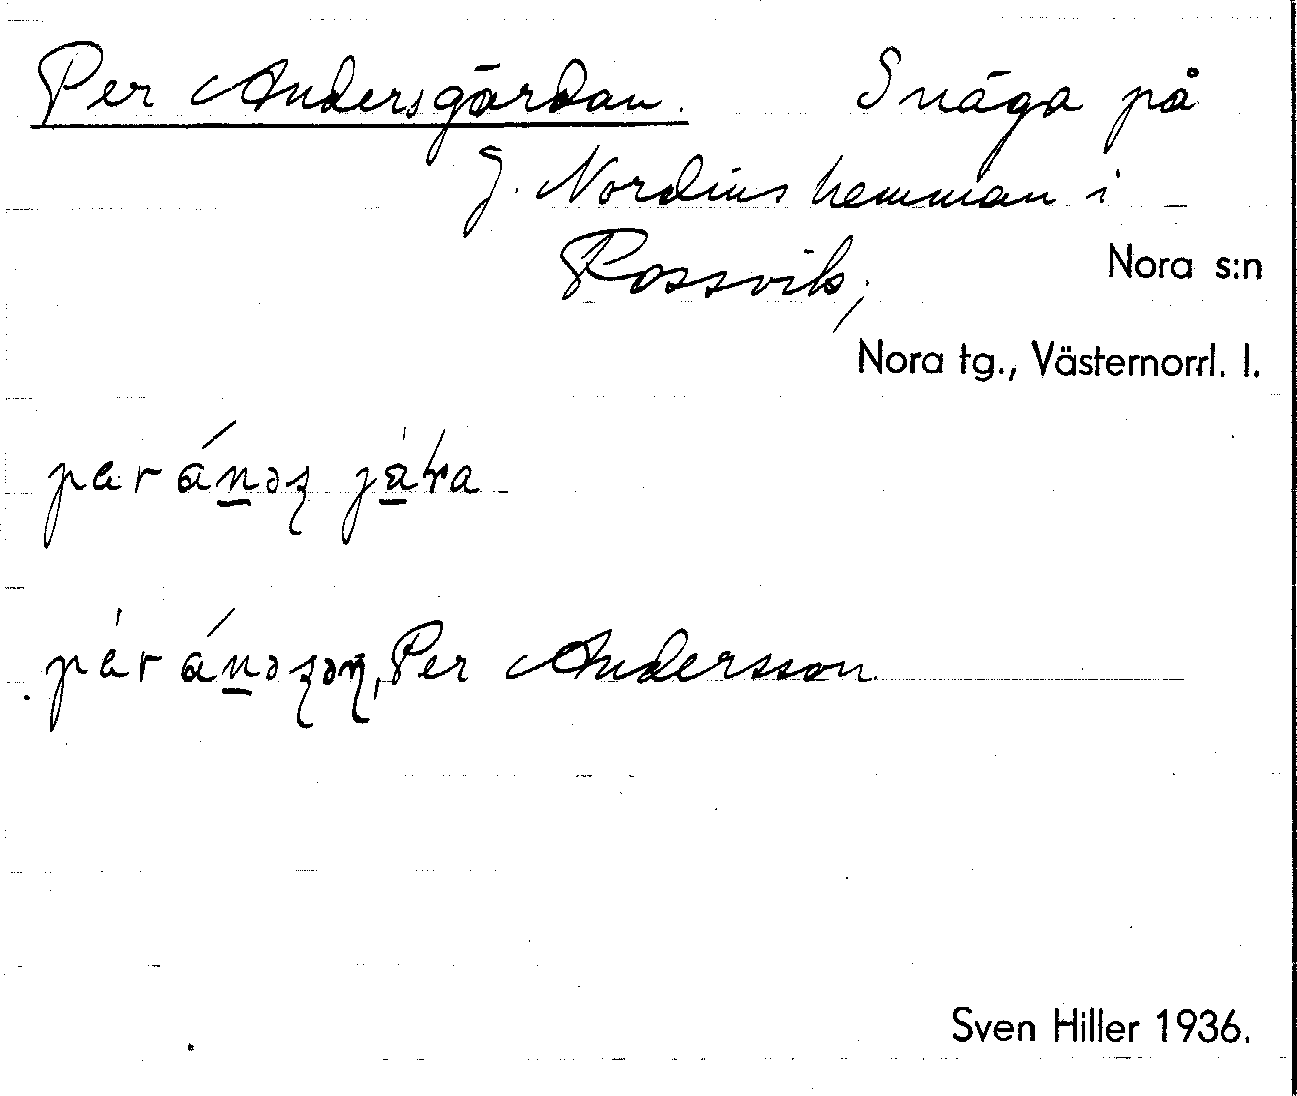 Per Andersgärdan. Snäga på
J. Nordins hemman i
Rossvik,
Nora s:n
Nora tg., Västernorrl. l.
per ánəʂ
pèr ánəʂəɳ, Per Andersson
Sven Hiller 1936.